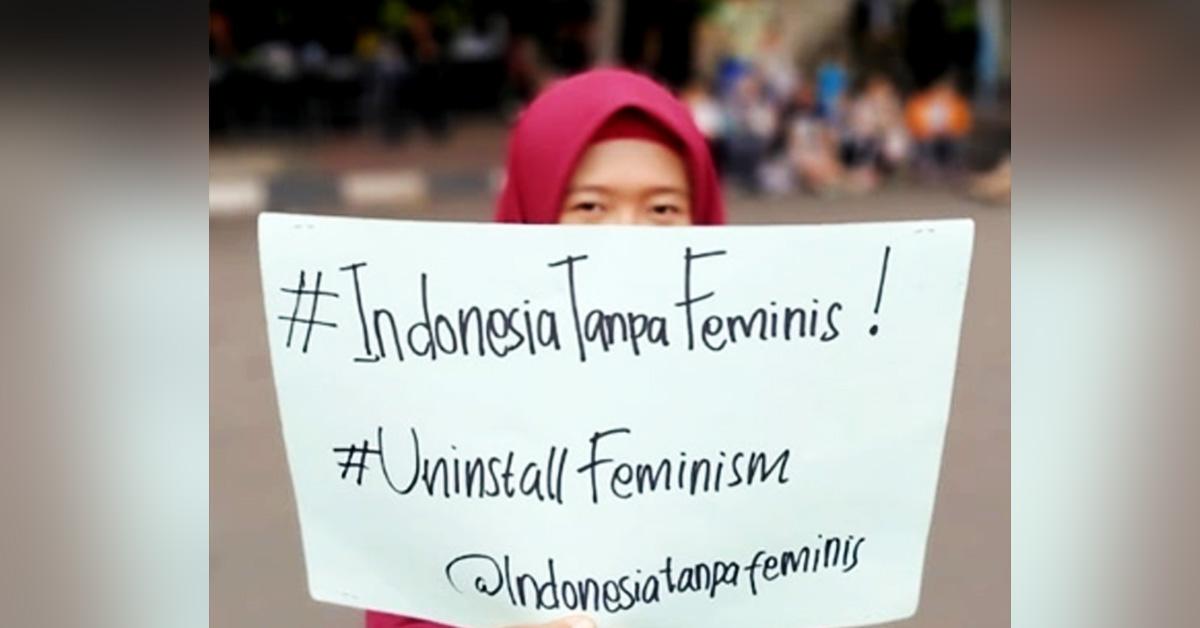 #IndonesiaTanpaFeminis!
#UninstallFeminism
@Indonesiatanpafeminis